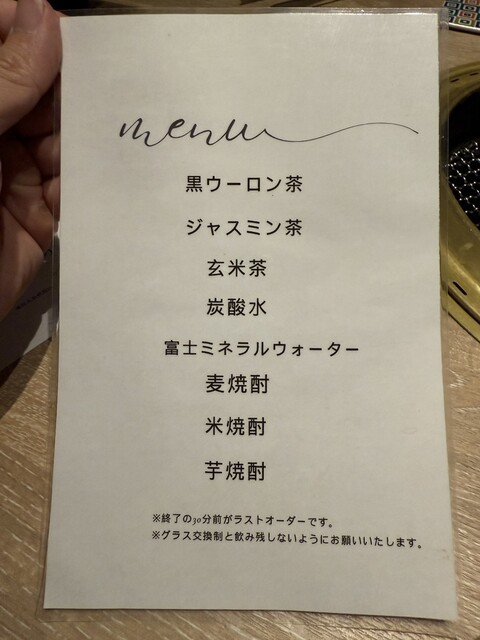 menu
黒ウーロン茶
ジャスミン茶
玄米茶
炭酸水
富士ミネラルウォーター
麦焼酎
米焼酎
芋焼酎
※終了の30分前がラストオーダーです。
※グラス交換制と飲み残しないようにお願いいたします。